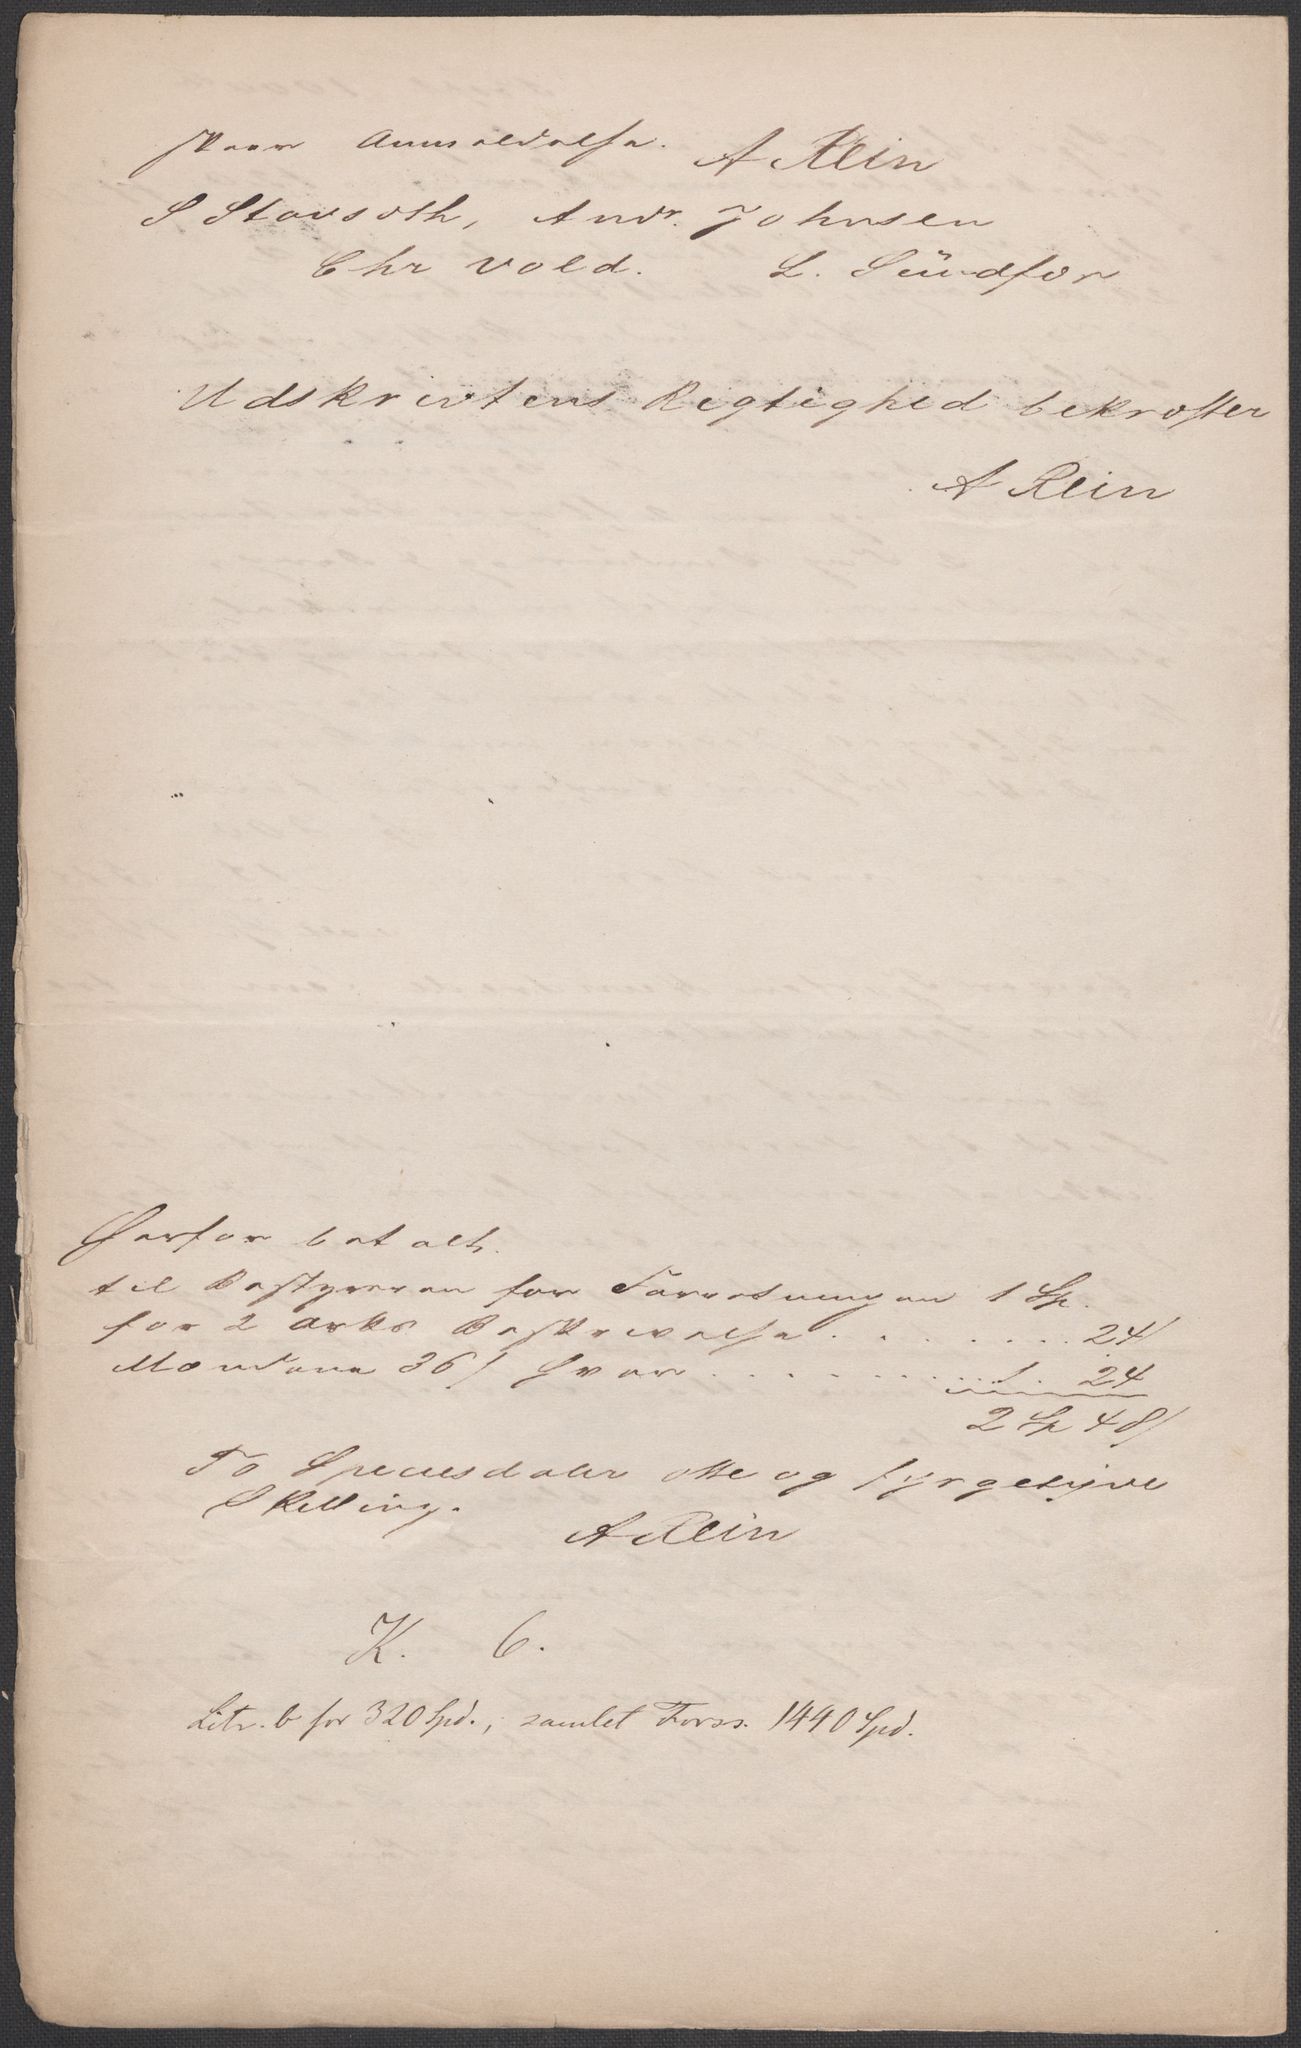 skeer Anmeldelse. A Rein
S Stavseth, Andr. Johnsen
Chr Vold. L. Sündfør
Udskrivtens Rigtighed bekræfter
A Rein
Herfor betalt.
til Bestyreren for Forretningen 1 Sp.
for 2 Arks Beskrivelse . . . . . . . 24/
Mændene 36/ hver . . . . . . . . . 1. 24
2 Sp 48/
To Speciesdaler otte og fyrgetyve
Skilling.
A Rein
K. 6.
Litr. b for 320 Spd., samlet Forss. 1440 Spd.